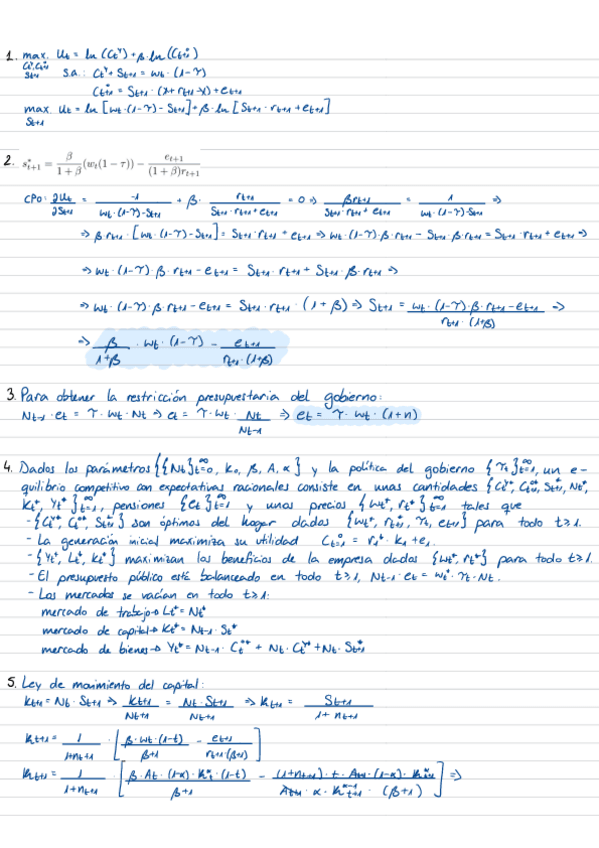 1. max. Ut = ln (Ct^y) + β·ln (Ct+1^o)
Ct^y, Ct+1^o
St+1
s.a.: Ct^y + St+1 = wt·(1-τ)
Ct+1^o = St+1·(1+rt+1-γ)+et+1
max. Ut = ln [wt·(1-τ) - St+1] + β·ln [St+1·rt+1 + et+1]
St+1
2. s*t+1 = β/(1+β) (wt(1-τ)) - et+1/((1+β)rt+1)
CPO: ∂Ut/∂St+1 = -1/(wt·(1-τ)-St+1) + β· rt+1/(St+1·rt+1+et+1) = 0 ⇒ βrt+1/(St+1·rt+1+et+1) = 1/(wt·(1-τ)-St+1) ⇒
⇒ β·rt+1·[wt·(1-τ)-St+1] = St+1·rt+1 + et+1 ⇒ wt·(1-τ)·β·rt+1 - St+1·β·rt+1 = St+1·rt+1 + et+1 ⇒
⇒ wt·(1-τ)·β·rt+1 - et+1 = St+1·rt+1 + St+1·β·rt+1 ⇒
⇒ wt·(1-τ)·β·rt+1 - et+1 = St+1·rt+1·(1+β) ⇒ St+1 = (wt·(1-τ)·β·rt+1 - et+1)/(rt+1·(1+β)) ⇒
⇒ β/(1+β) · wt·(1-τ) - et+1/(rt+1·(1+β))
3. Para obtener la restricción presupuestaria del gobierno:
Nt-1·et = τ·wt·Nt ⇒ et = τ·wt· Nt/Nt-1 ⇒ et = τ·wt·(1+n)
4. Dados los parámetros {{Nt}t=0^∞, K0, β, A, α} y la política del gobierno {τt}t=1^∞, un e-
quilibrio competitivo con expectativas racionales consiste en unas cantidades {Ct^y*, Ct^o*, St+1*, Nt*,
Kt*, Yt*}t=1^∞, pensiones {et}t=1^∞ y unos precios {wt*, rt*}t=1^∞ tales que
- {Ct^y*, Ct^o*, St+1*} son óptimos del hogar dados {wt*, rt+1*, τt, et+1} para todo t≥1.
- La generación inicial maximiza su utilidad Ct=1^o = r1*·k1+e1.
- {Yt*, Lt*, Kt*} maximizan los beneficios de la empresa dados {wt*, rt*} para todo t≥1.
- El presupuesto público está balanceado en todo t≥1, Nt-1·et = wt*·τt·Nt.
- Los mercados se vacían en todo t≥1:
mercado de trabajo → Lt* = Nt*
mercado de capital → Kt* = Nt-1·St*
mercado de bienes → Yt* = Nt-1·Ct^o* + Nt·Ct^y* + Nt·St+1*
5. Ley de movimiento del capital:
Kt+1 = Nt·St+1 ⇒ Kt+1/Nt+1 = Nt·St+1/Nt+1 ⇒ kt+1 = St+1/(1+nt+1)
kt+1 = 1/(1+nt+1) · [β·wt·(1-t)/(β+1) - et+1/(rt+1(β+1))]
kt+1 = 1/(1+nt+1) · [β·At·(1-α)·kt^α·(1-t)/(β+1) - (1+nt+1)·t·At+1·(1-α)·kt+1^α/(At+1·α·kt+1^α-1·(β+1))] ⇒